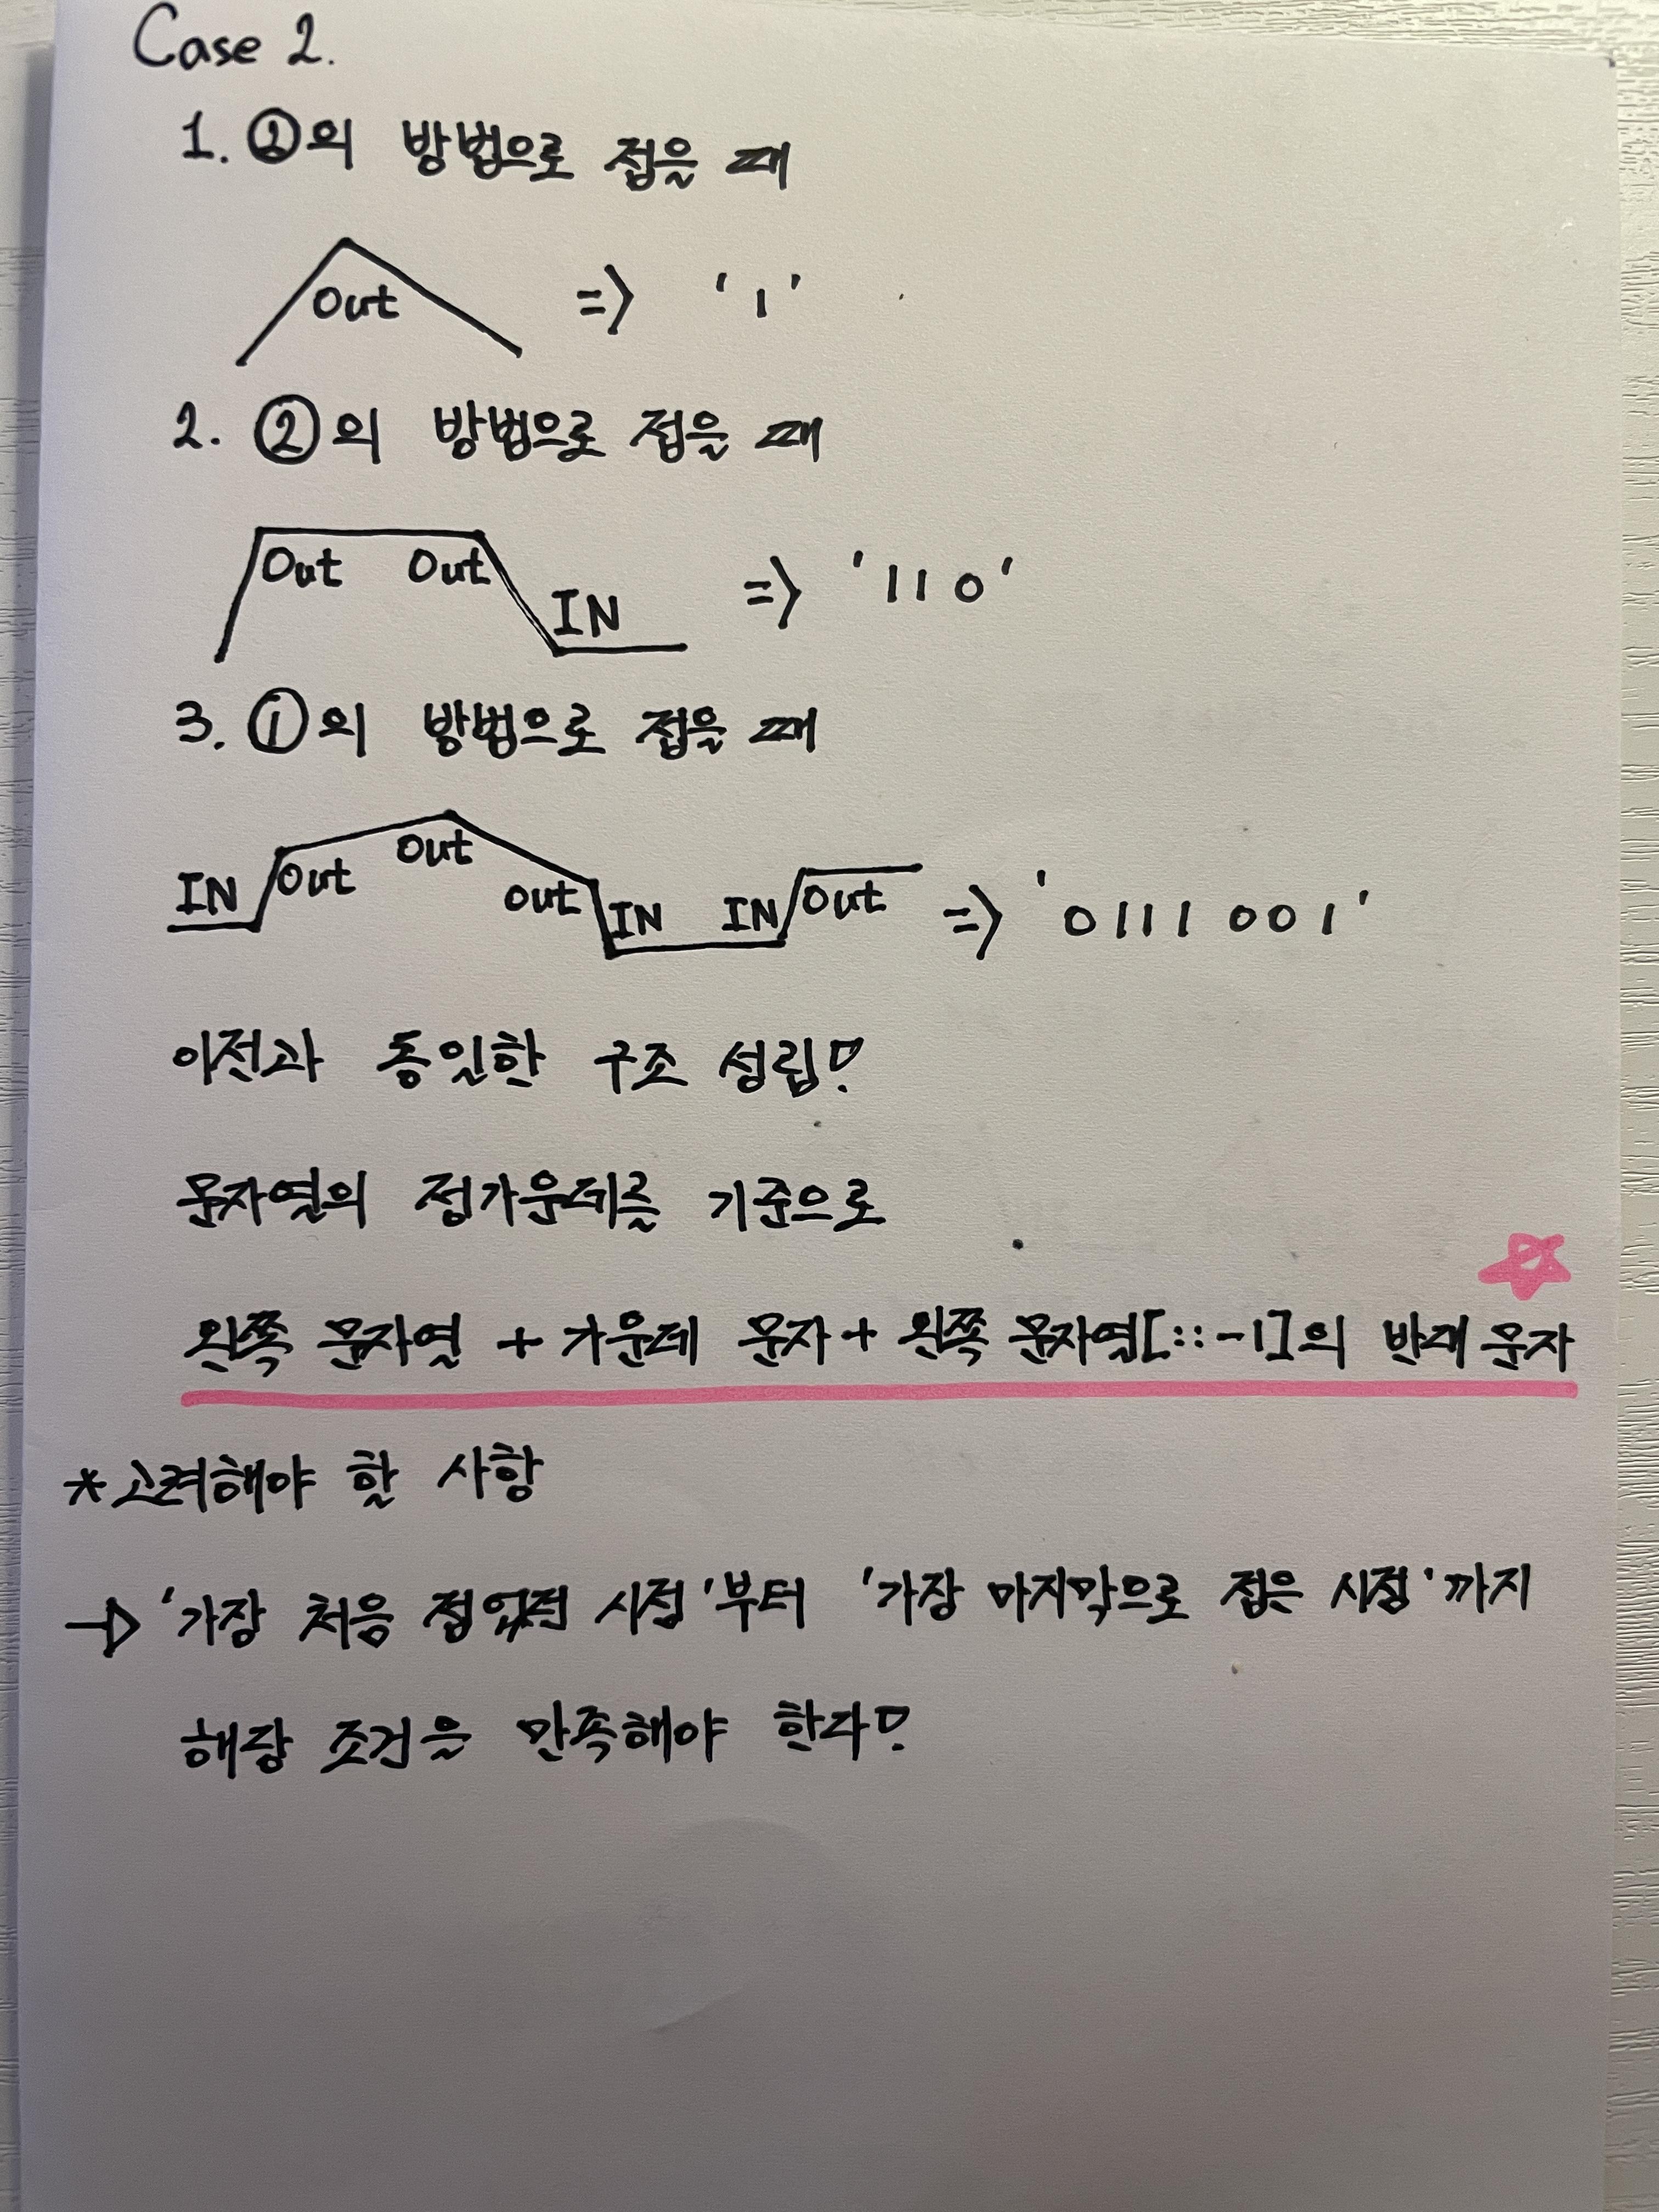 Case 2.
1. ②의 방법으로 접을 때
Out => '1'
2. ②의 방법으로 접을 때
Out Out IN => '110'
3. ①의 방법으로 접을 때
IN Out Out Out IN IN Out => '0111001'
이전과 동일한 구조 성립!
문자열의 정가운데를 기준으로
왼쪽 문자열 + 가운데 문자 + 왼쪽 문자열[::-1]의 반대 문자
*고려해야 할 사항
→ '가장 처음 접 시점'부터 '가장 마지막으로 접은 시점'까지
해당 조건을 만족해야 한다!